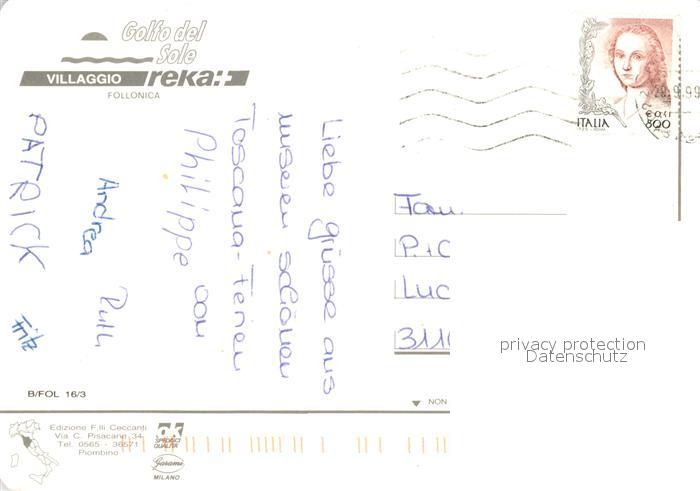 Golfo del
Sole
VILLAGGIO reka:
FOLLONICA
Liebe grüsse aus
unseren schönen
Toscana-Ferien
von
Philippe
Andrea
Ruth
PATRICK
Fritz
B/FOL 16/3
Edizione F.lli Ceccanti
Via C. Pisacane 34
Tel. 0565 - 36571
Piombino
ok
QUALITÀ
Garami
MILANO
ITALIA
800
9.99
Fam.
P.
Luc
311
NON
privacy protection
Datenschutz